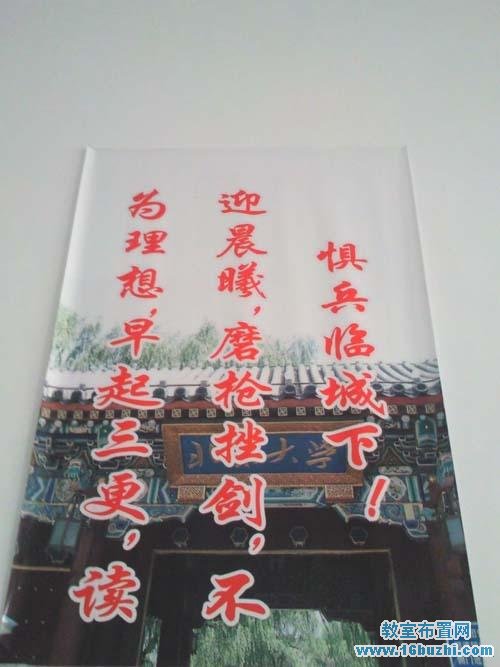 为理想,早起三更,读
迎晨曦,磨枪挫剑,不
惧兵临城下!
北京大学
教室布置网
www.16buzhi.com